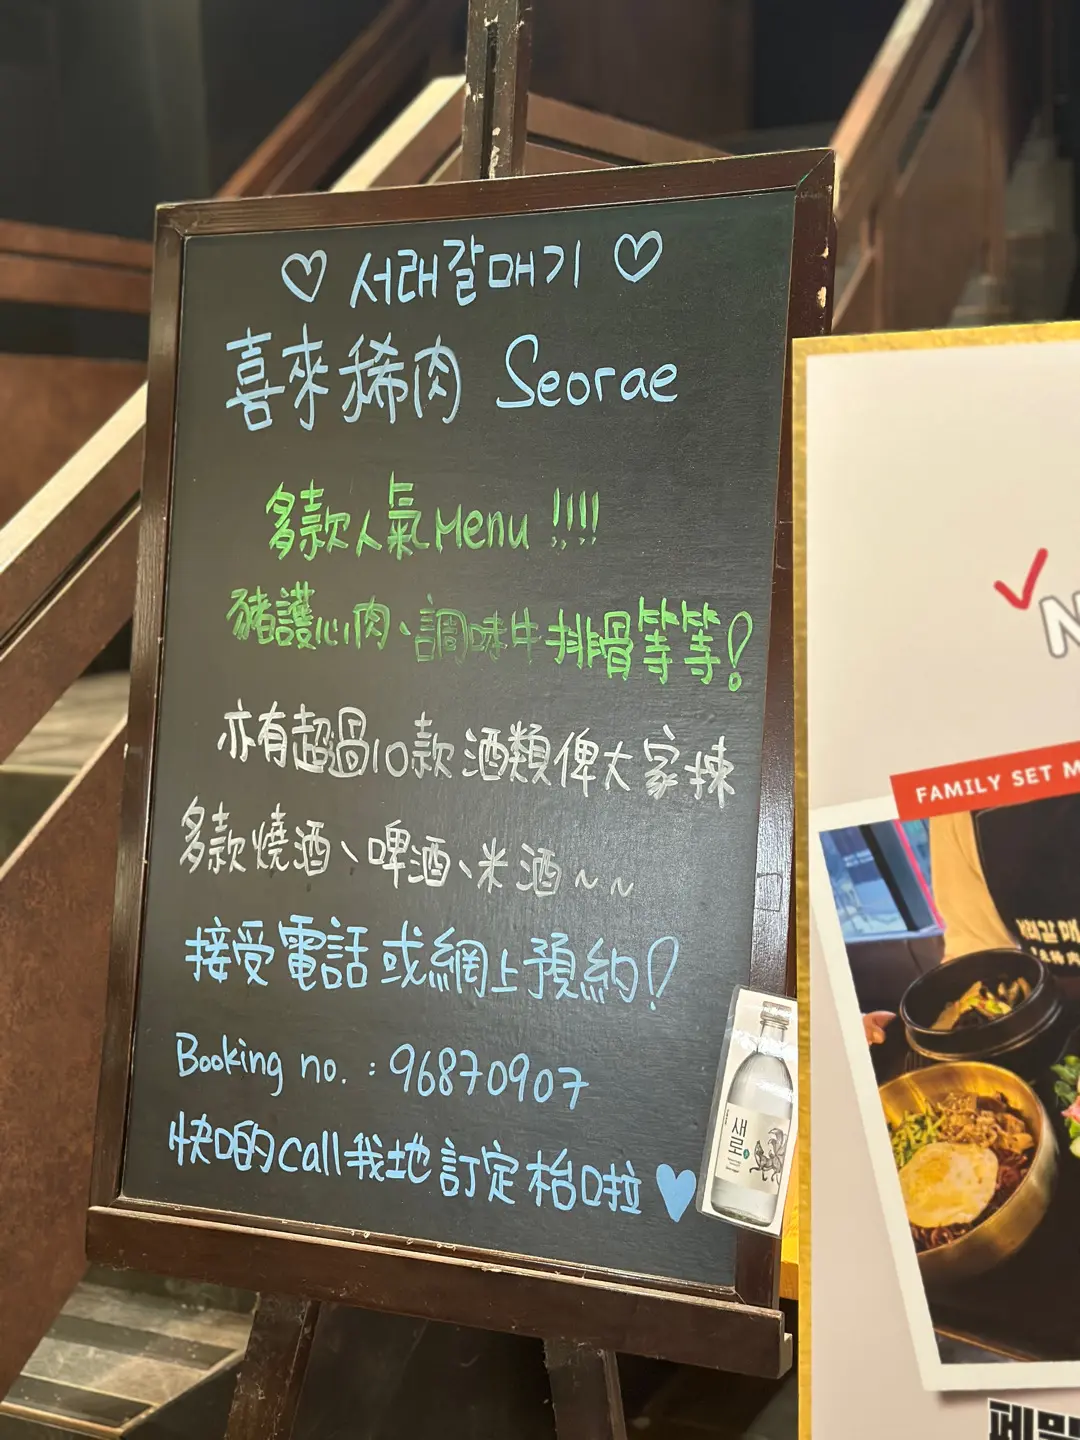 ♡ 서래갈매기 ♡
喜來稀肉 Seorae
多款人氣Menu !!!!
豬護心肉、調味牛排骨等等!
亦有超過10款酒類俾大家揀
多款燒酒、啤酒、米酒~~
接受電話或網上預約!
Booking no. : 96870907
快啲call我地訂定枱啦 ♥
새로
N
FAMILY SET M